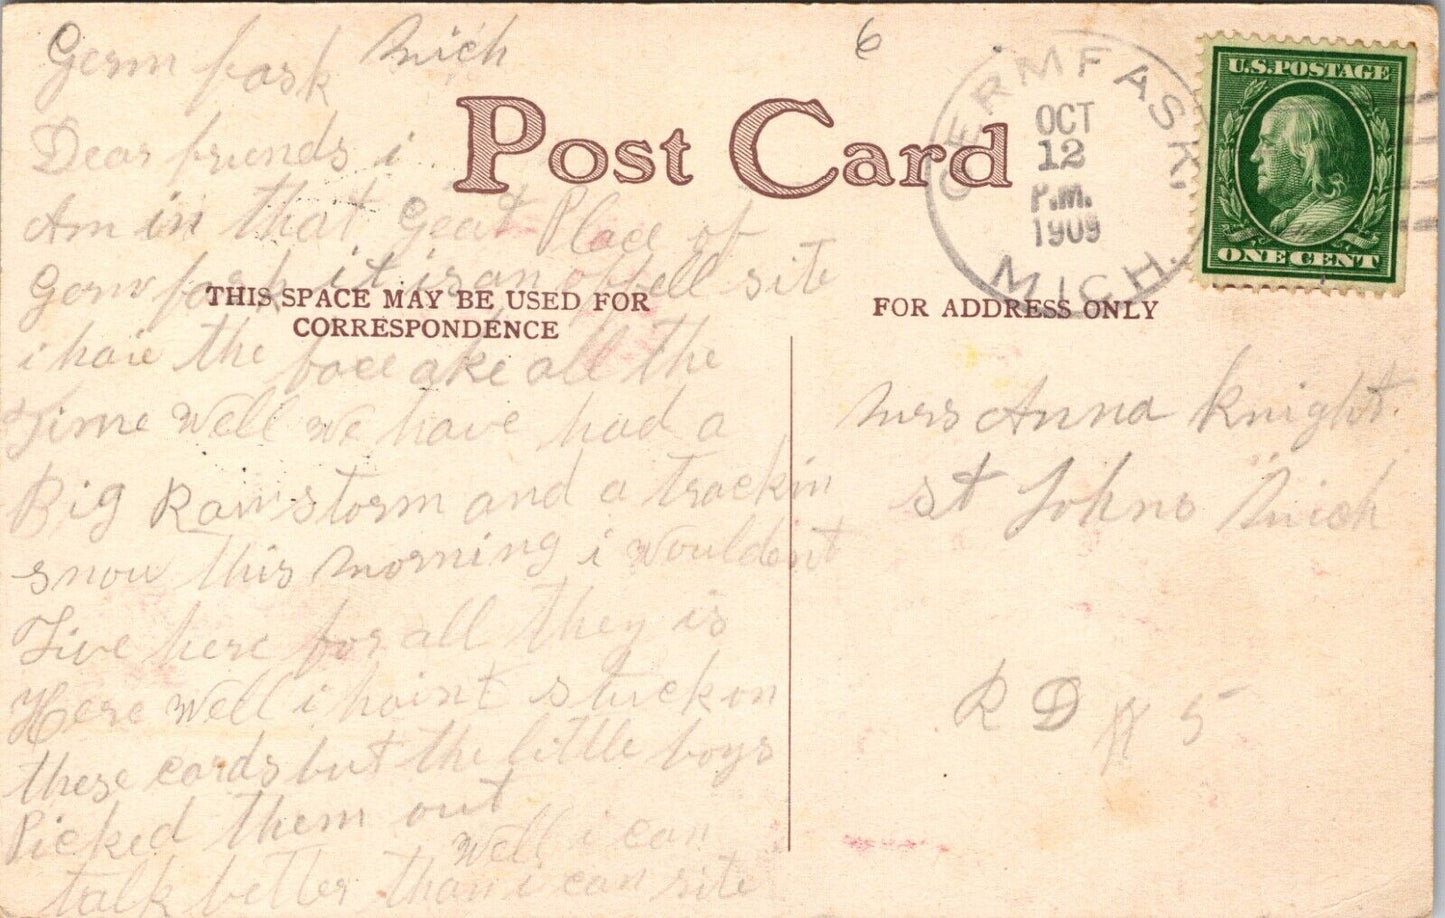 Germ fask Mich
6
Post Card
GERMFASK, MICH.
OCT
12
P.M.
1909
U.S. POSTAGE
ONE CENT
Dear friends i
Am in that Geat Place of
Germ fask it is an offell site
THIS SPACE MAY BE USED FOR
CORRESPONDENCE
FOR ADDRESS ONLY
i have the face ake all the
Time Well we have had a
Big Rain storm and a trackin
snow this morning i wouldent
Live here for all they is
Here well i haint stuck on
these cards but the little boys
Picked them out
Well i can
talk better than i can rite
Mrs Anna Knight.
st Johns Mich
R D # 5